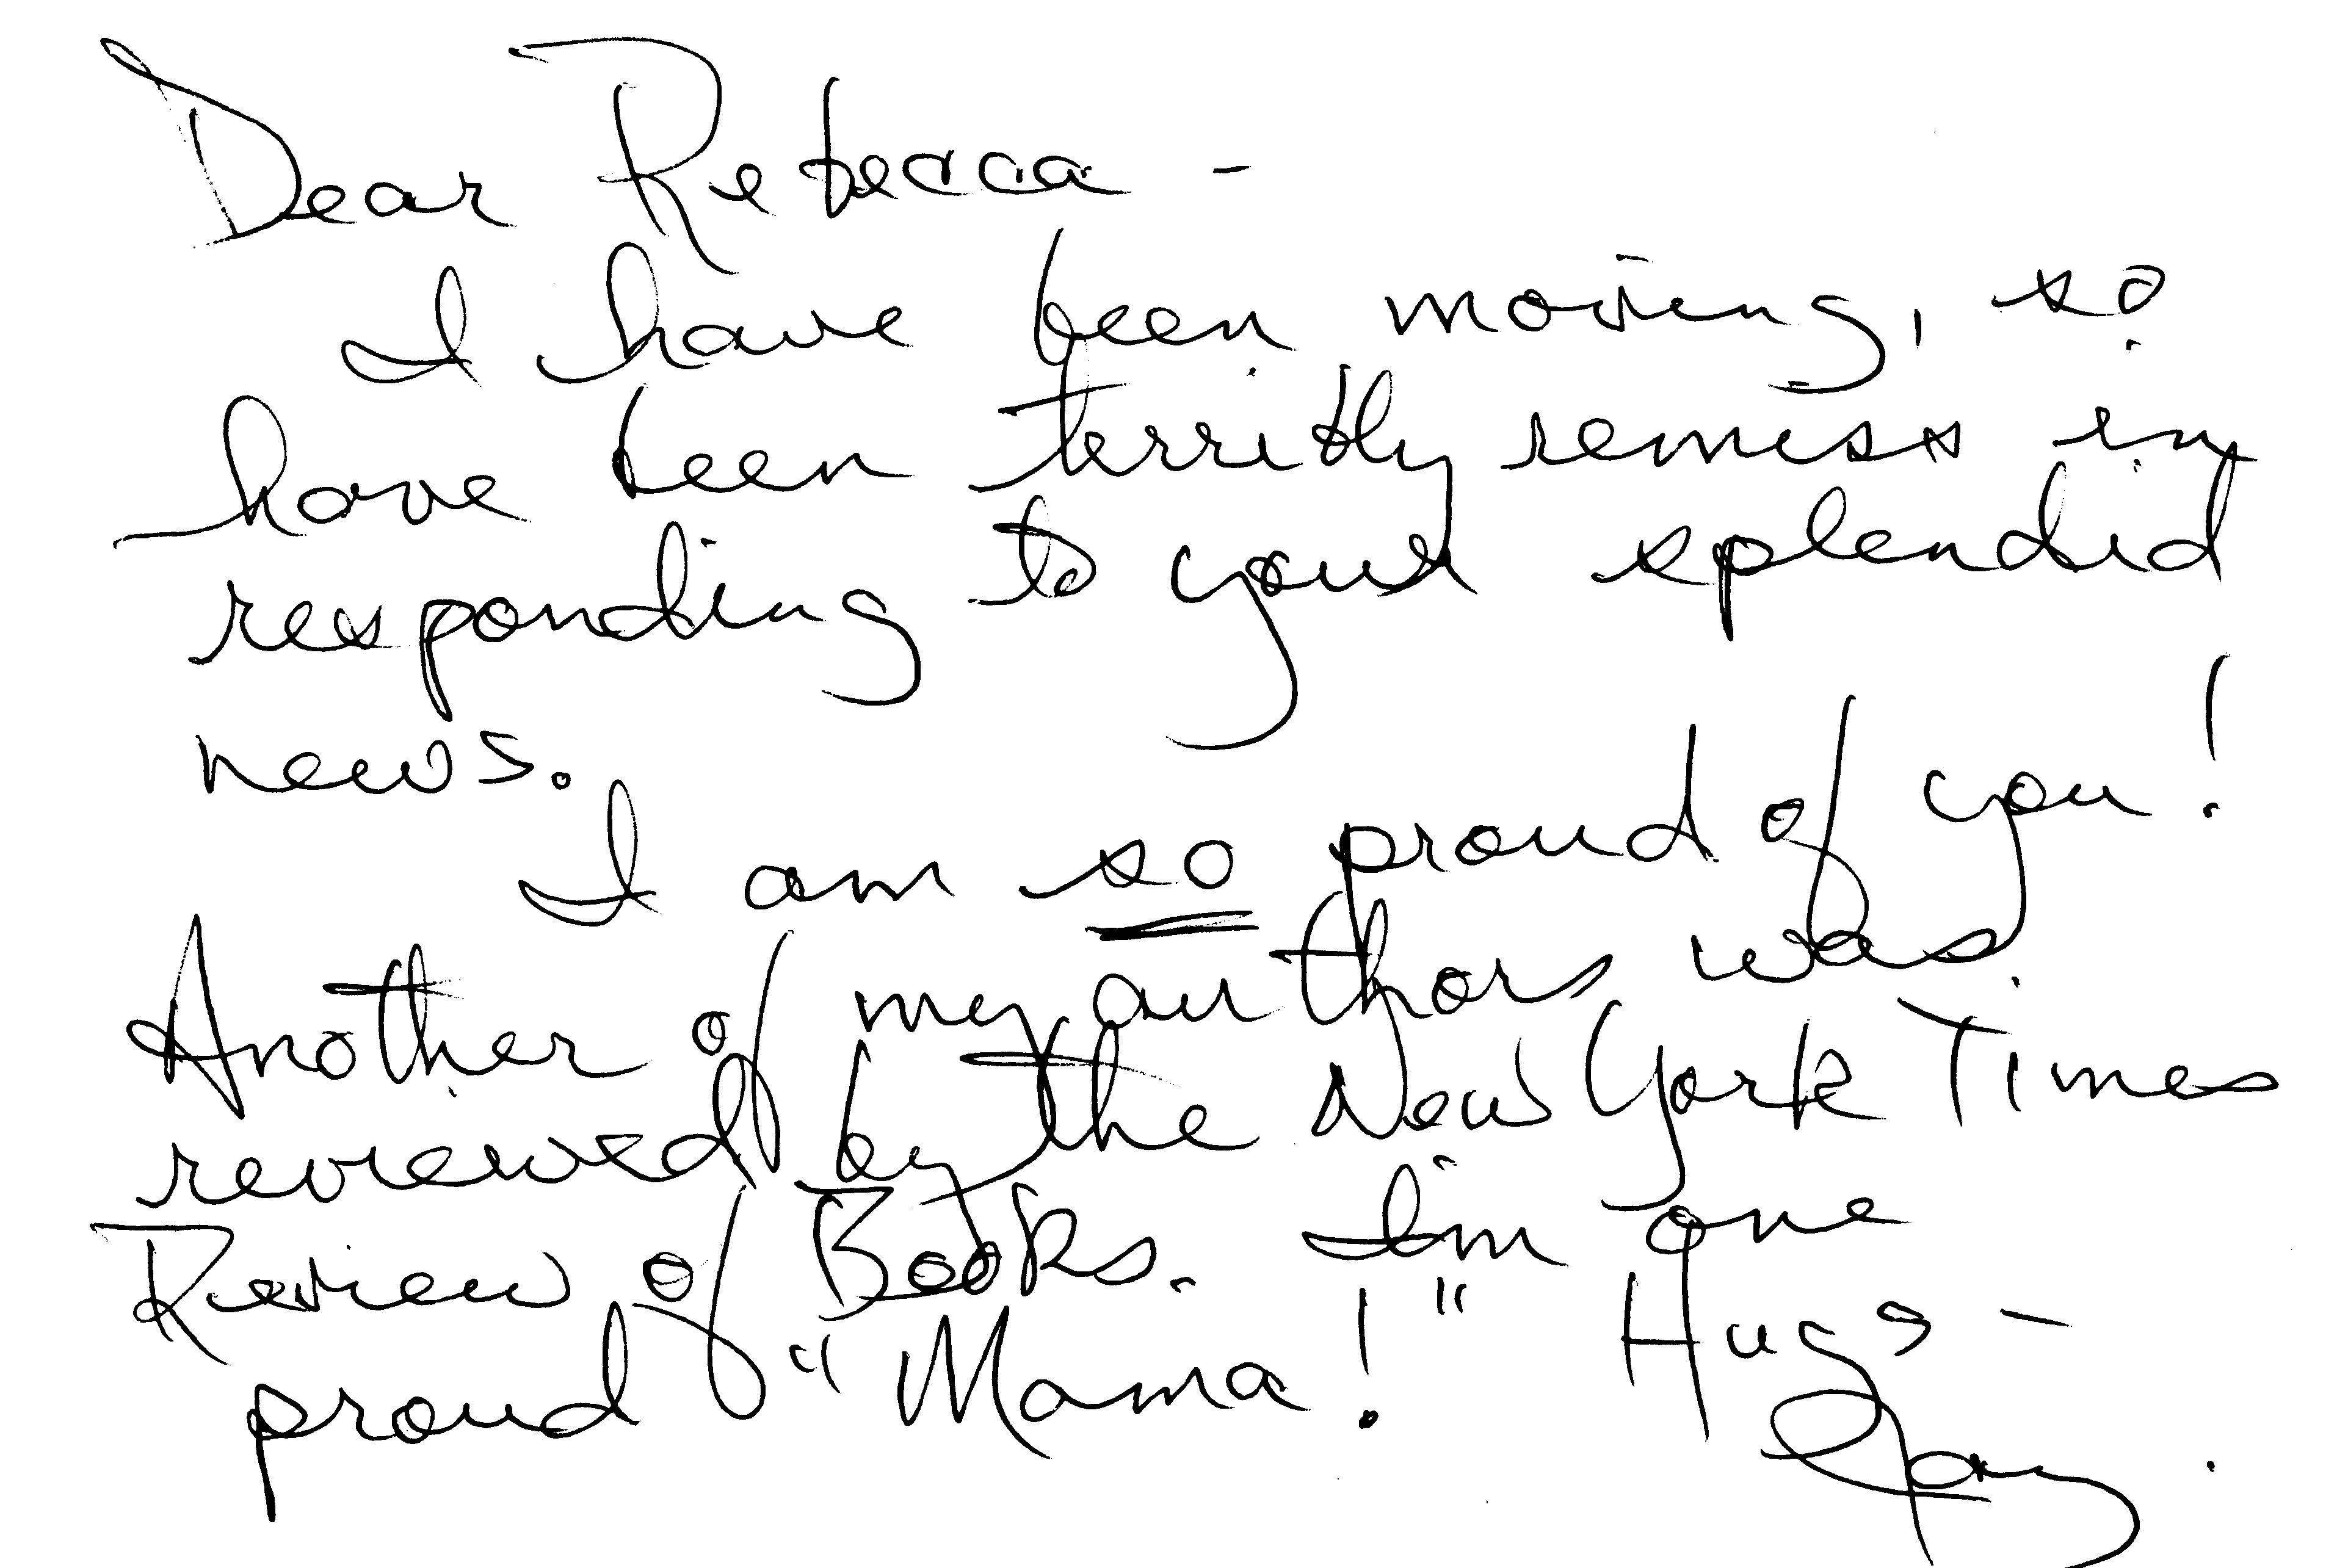 Dear Rebecca -
I have been moving, so
have been terribly remiss in
responding to your splendid
news.
I am so proud of you!
Another of my authors was
reviewed by the New York Times
Review of Books. I'm one
proud "Mama!" Hugs -